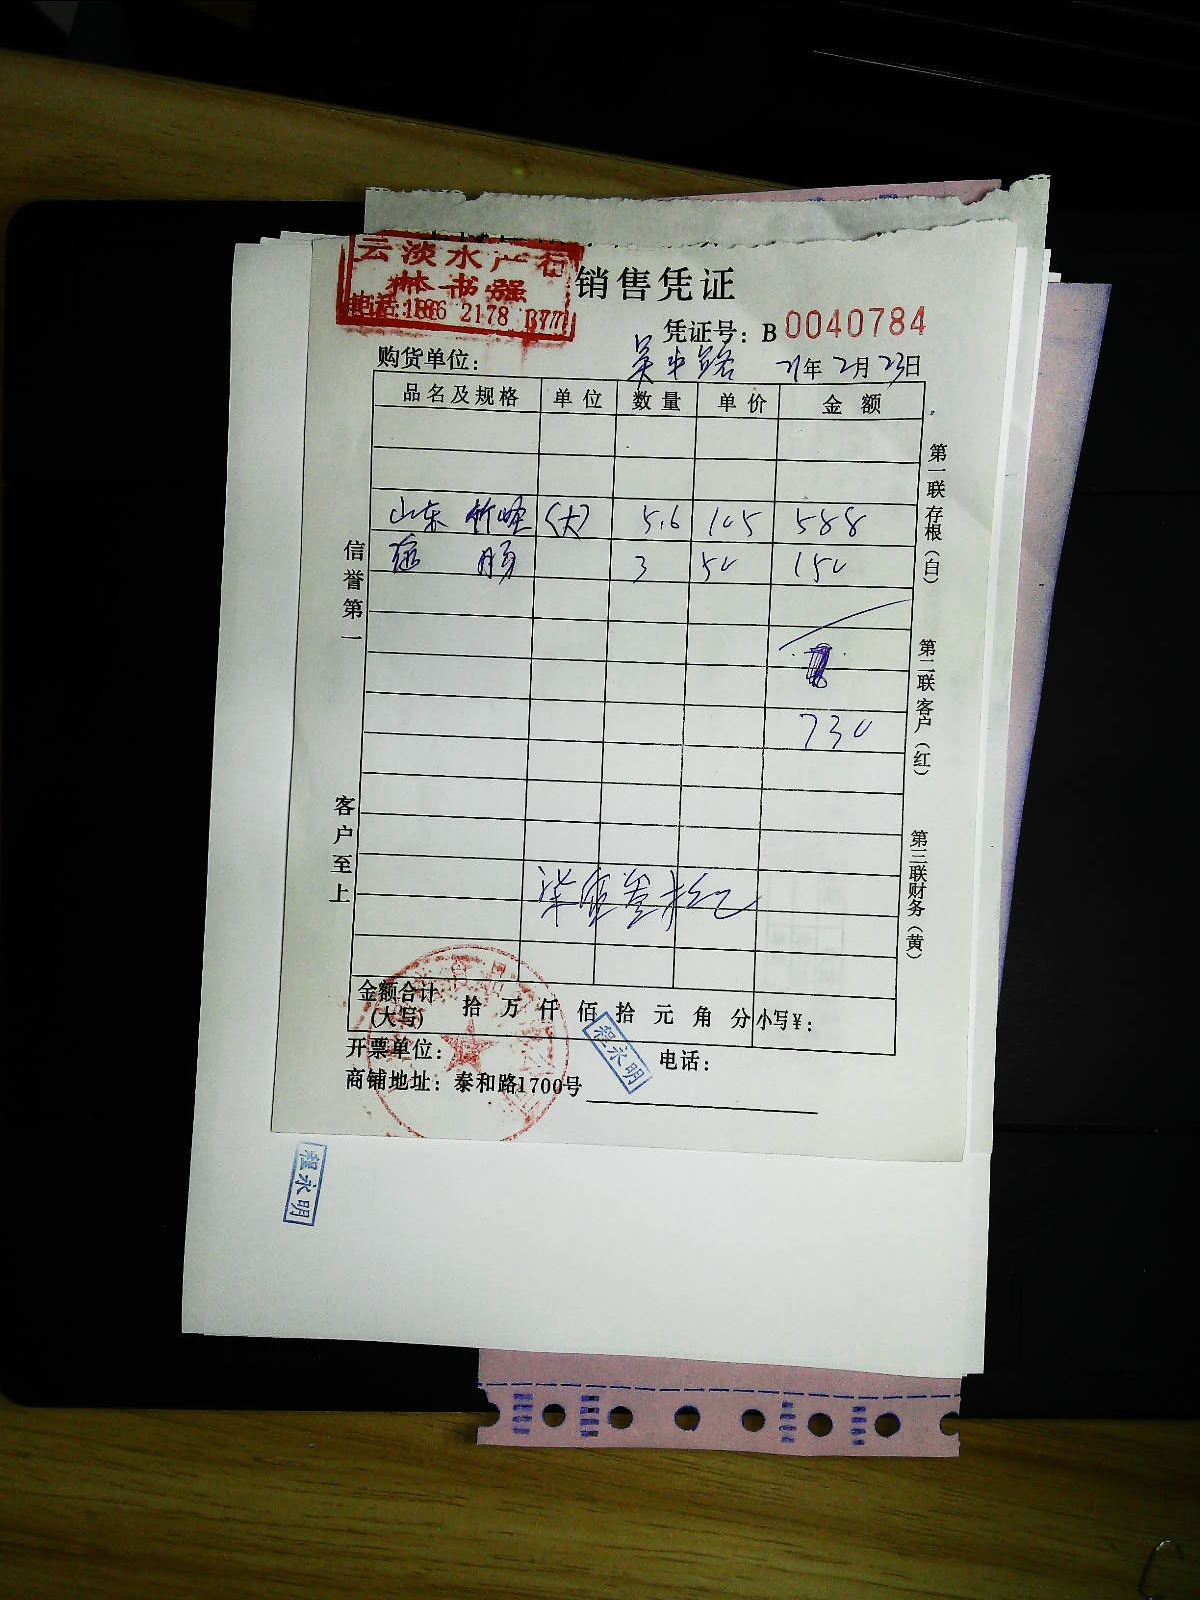 云淡水产
林书强
电话:186 2178 1377
销售凭证
凭证号: B 0040784
购货单位: 吴中路 21年 2月 23日
品名及规格 单位 数量 单价 金额
山东 竹蛏 (大) 5.6 105 588
3 50 150
730
柒佰叁拾元
金额合计(大写) 拾 万 仟 佰 拾 元 角 分 小写¥:
开票单位: 电话:
商铺地址: 泰和路1700号
程永明
程永明
信誉第一
客户至上
第一联 存根(白)
第二联 客户(红)
第三联 财务(黄)